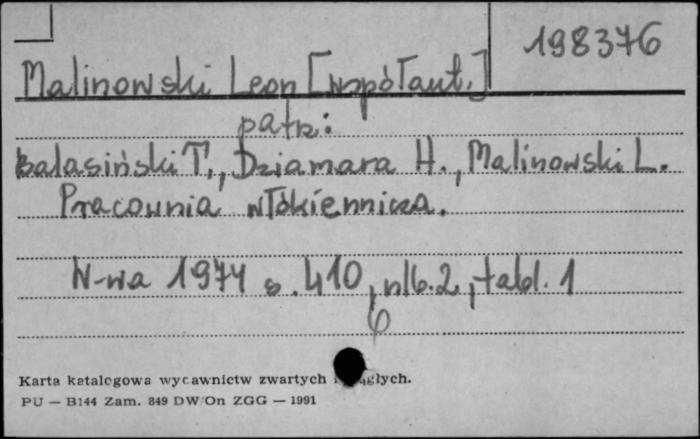 198376
Malinowski Leon [współaut.]
patrz:
Bałasiński T., Dziamara H., Malinowski L.
Pracownia włókiennicza.
W-wa 1974 s. 410, nlb. 2, tabl. 1
Karta katalogowa wydawnictw zwartych ciągłych.
PU — B144 Zam. 849 DW/On ZGG — 1991